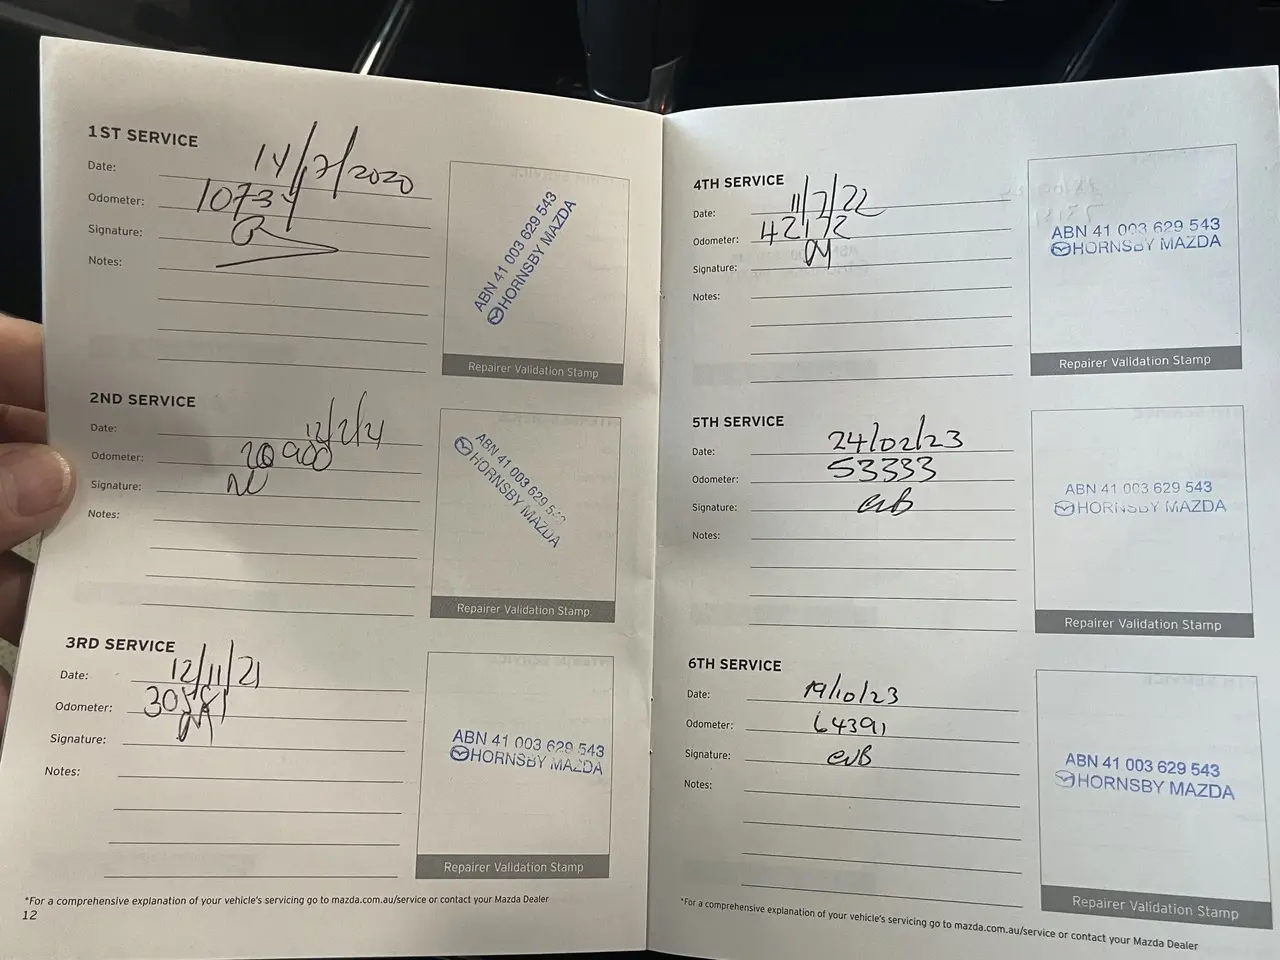 1ST SERVICE
Date: 14/7/2020
Odometer: 10734
Signature:
Notes:
ABN 41 003 629 543
HORNSBY MAZDA
Repairer Validation Stamp
2ND SERVICE
Date: 12/2/21
Odometer: 20900
Signature:
Notes:
ABN 41 003 629 543
HORNSBY MAZDA
Repairer Validation Stamp
3RD SERVICE
Date: 12/11/21
Odometer: 30581
Signature:
Notes:
ABN 41 003 629 543
HORNSBY MAZDA
Repairer Validation Stamp
*For a comprehensive explanation of your vehicle's servicing go to mazda.com.au/service or contact your Mazda Dealer
12
4TH SERVICE
Date: 11/7/22
Odometer: 42172
Signature:
Notes:
ABN 41 003 629 543
HORNSBY MAZDA
Repairer Validation Stamp
5TH SERVICE
Date: 24/02/23
Odometer: 53333
Signature:
Notes:
ABN 41 003 629 543
HORNSBY MAZDA
Repairer Validation Stamp
6TH SERVICE
Date: 19/10/23
Odometer: 64391
Signature:
Notes:
ABN 41 003 629 543
HORNSBY MAZDA
Repairer Validation Stamp
*For a comprehensive explanation of your vehicle's servicing go to mazda.com.au/service or contact your Mazda Dealer